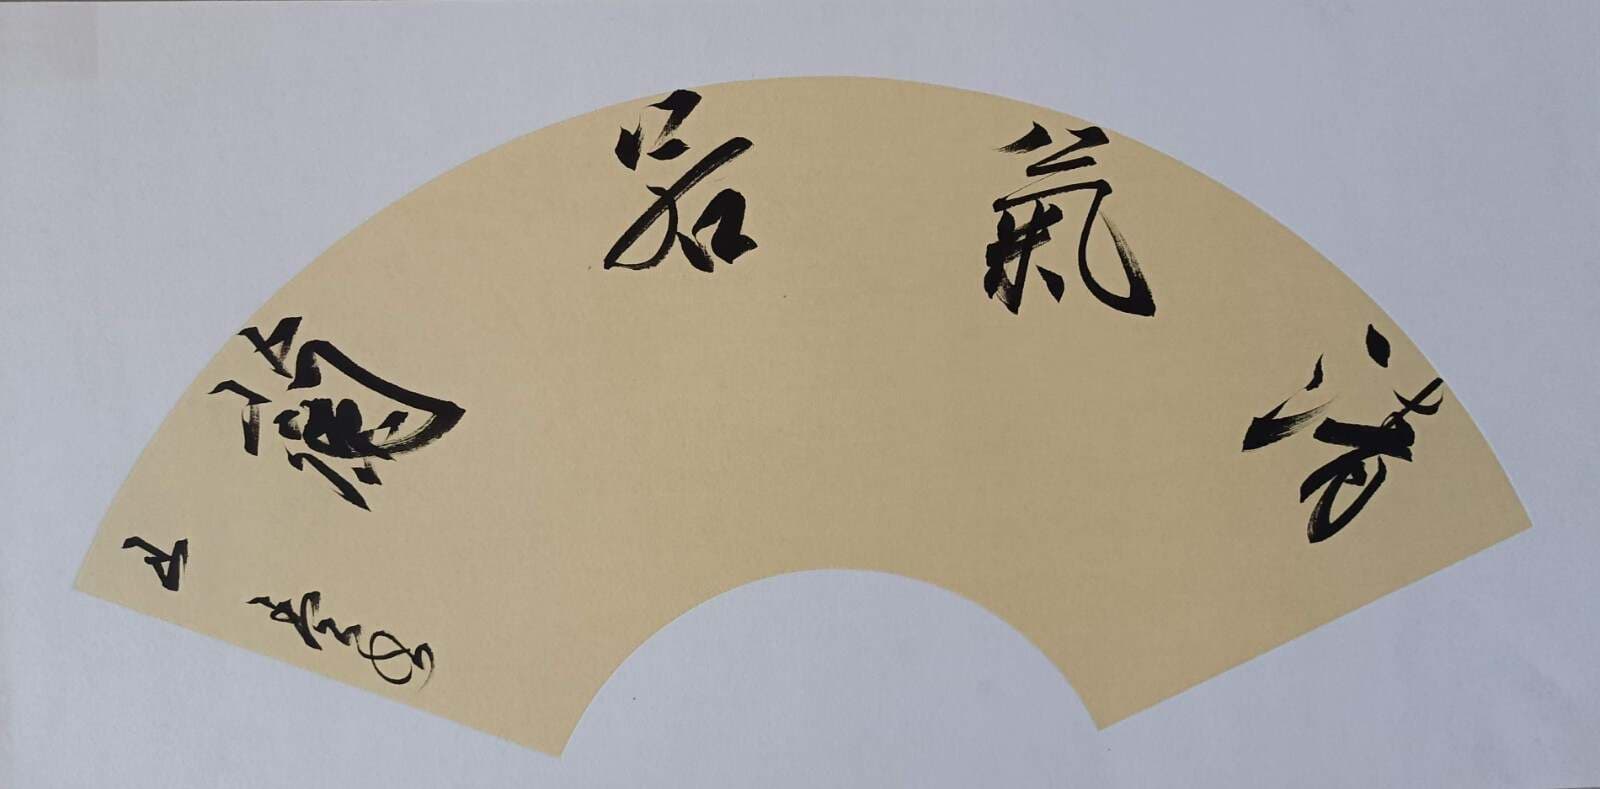 清氣若蘭